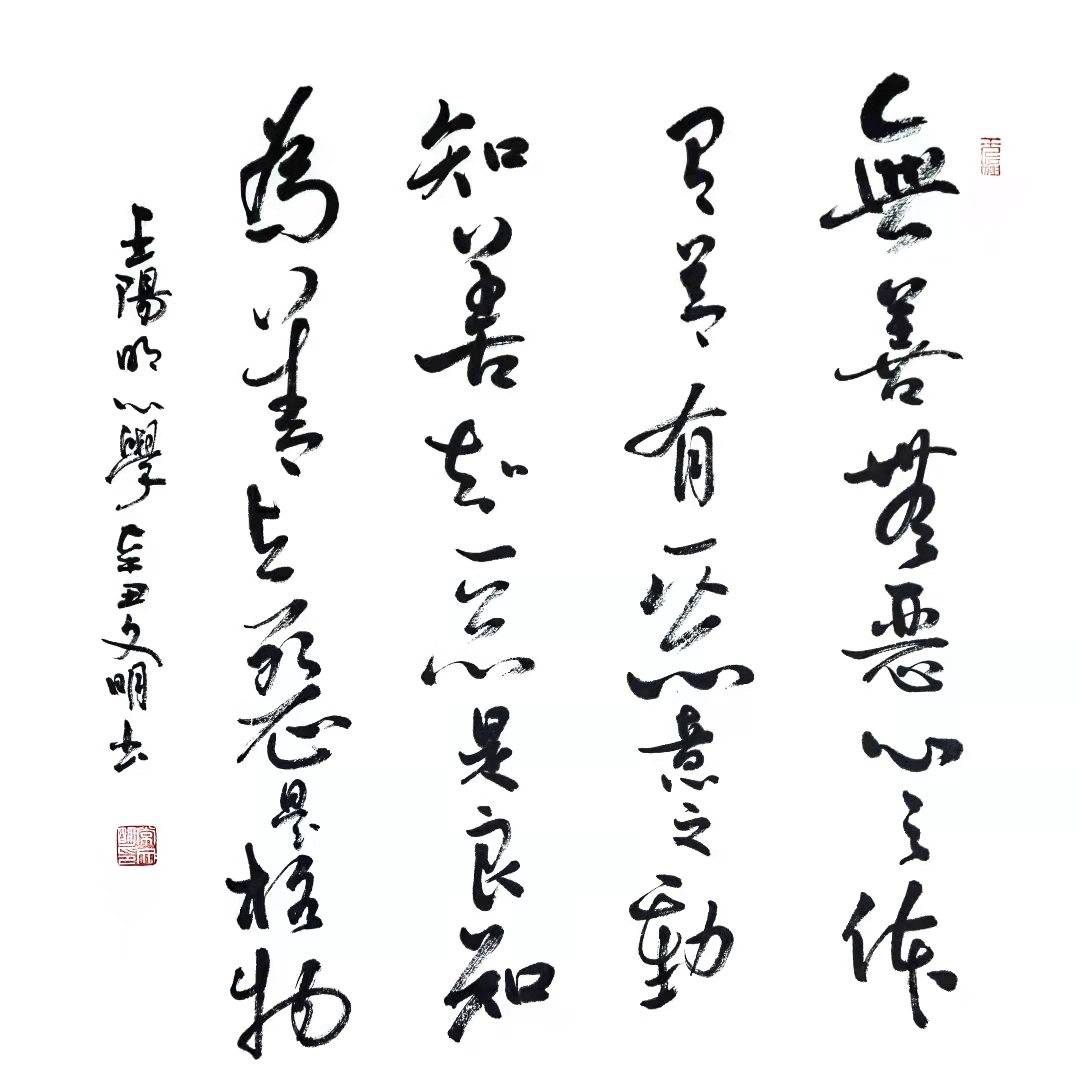 無善無惡心之体
有善有惡意之動
知善知惡是良知
為善去惡是格物
王陽明心學辛丑文明书